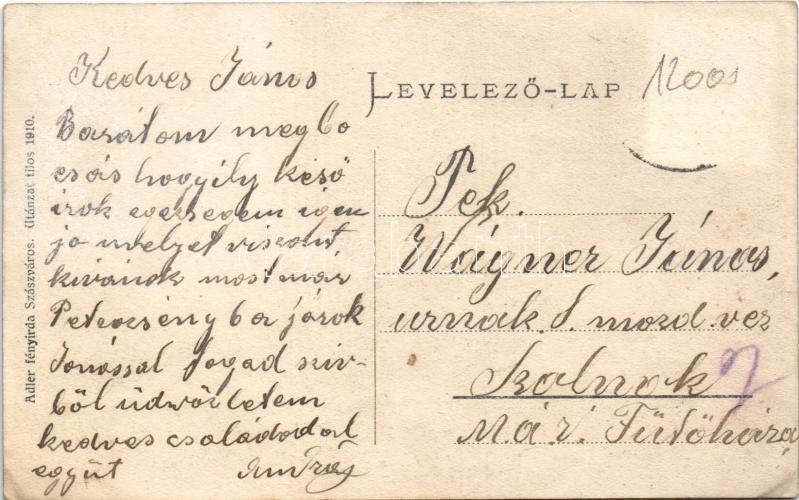 Kedves János
Barátom megbo
csás hogyily késö
irok egezsegem igen
jo melyet viszont
kivánok most már
Petrozsény ba járok
Jonással fogad sziv-
ből üdvözletem
kedves családodal
együt
Adler fényirda Szászváros. Utánzat tilos 1910.
LEVELEZŐ-LAP
12001
Tek.
Wágner János,
urnak. S. mozd. vez
Szolnok
M.á.v. Fütőháza